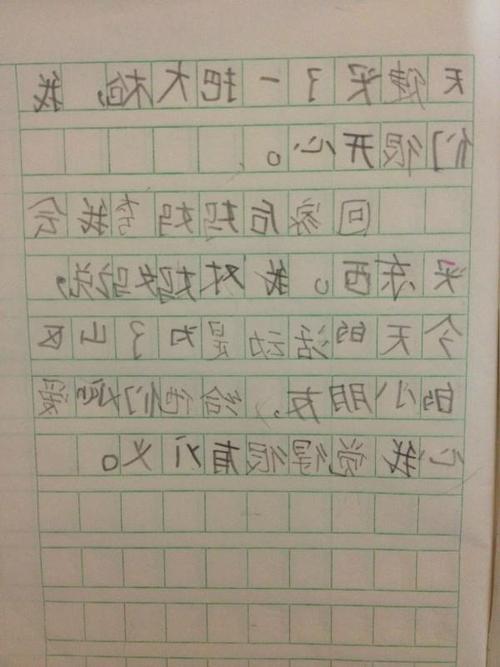 天健买了一把大枪,我
们很开心。
回家后妈妈夸我会
买东西。我对妈妈说,
今天的活动是为了山区
的小朋友,给他们爱
心我觉得很有义。